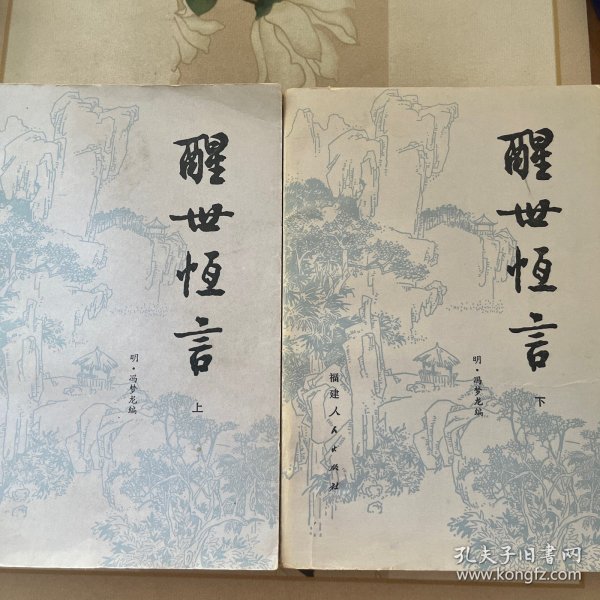 醒世恆言
上
明·冯梦龙编
醒世恆言
下
明·冯梦龙编
福建人民出版社
孔夫子旧书网
www.kongfz.com